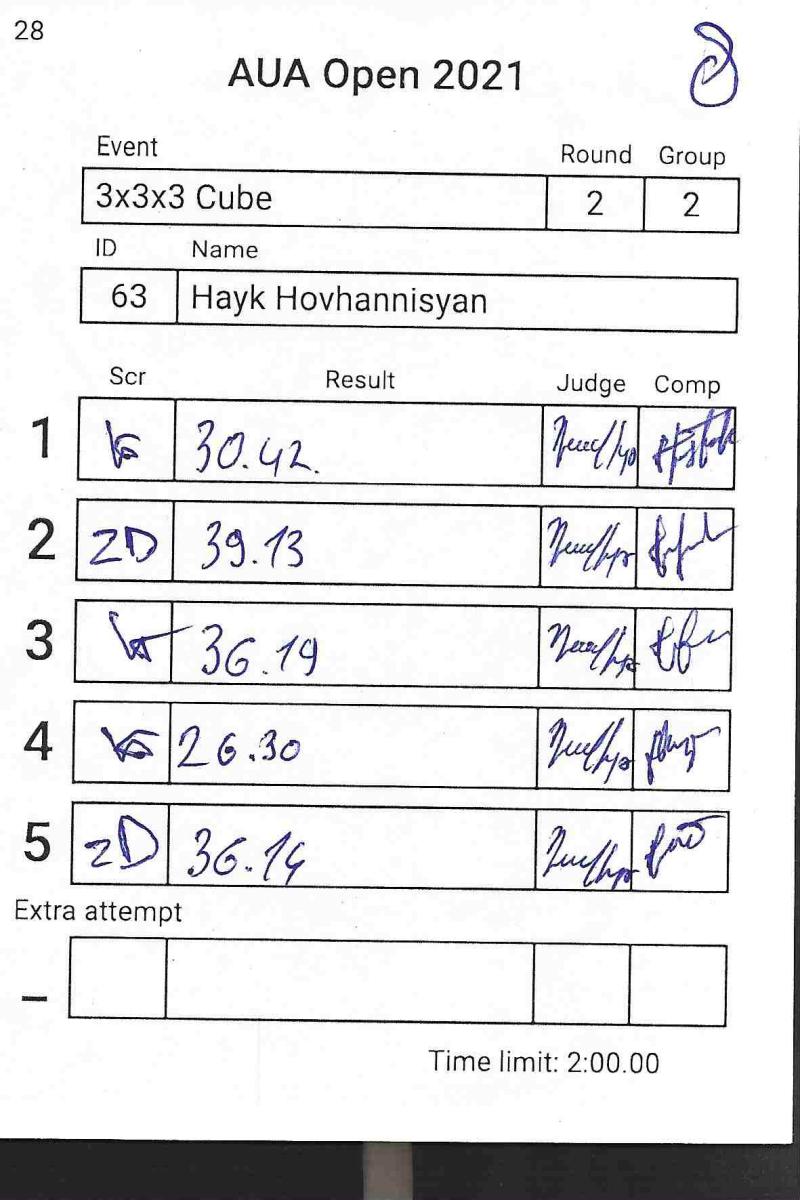 28
AUA Open 2021
Event Round Group
3x3x3 Cube 2 2
ID Name
63 Hayk Hovhannisyan
Scr Result Judge Comp
1 30.42.
2 ZD 39.13
3 36.19
4 26.30
5 ZD 36.14
Extra attempt
_
Time limit: 2:00.00